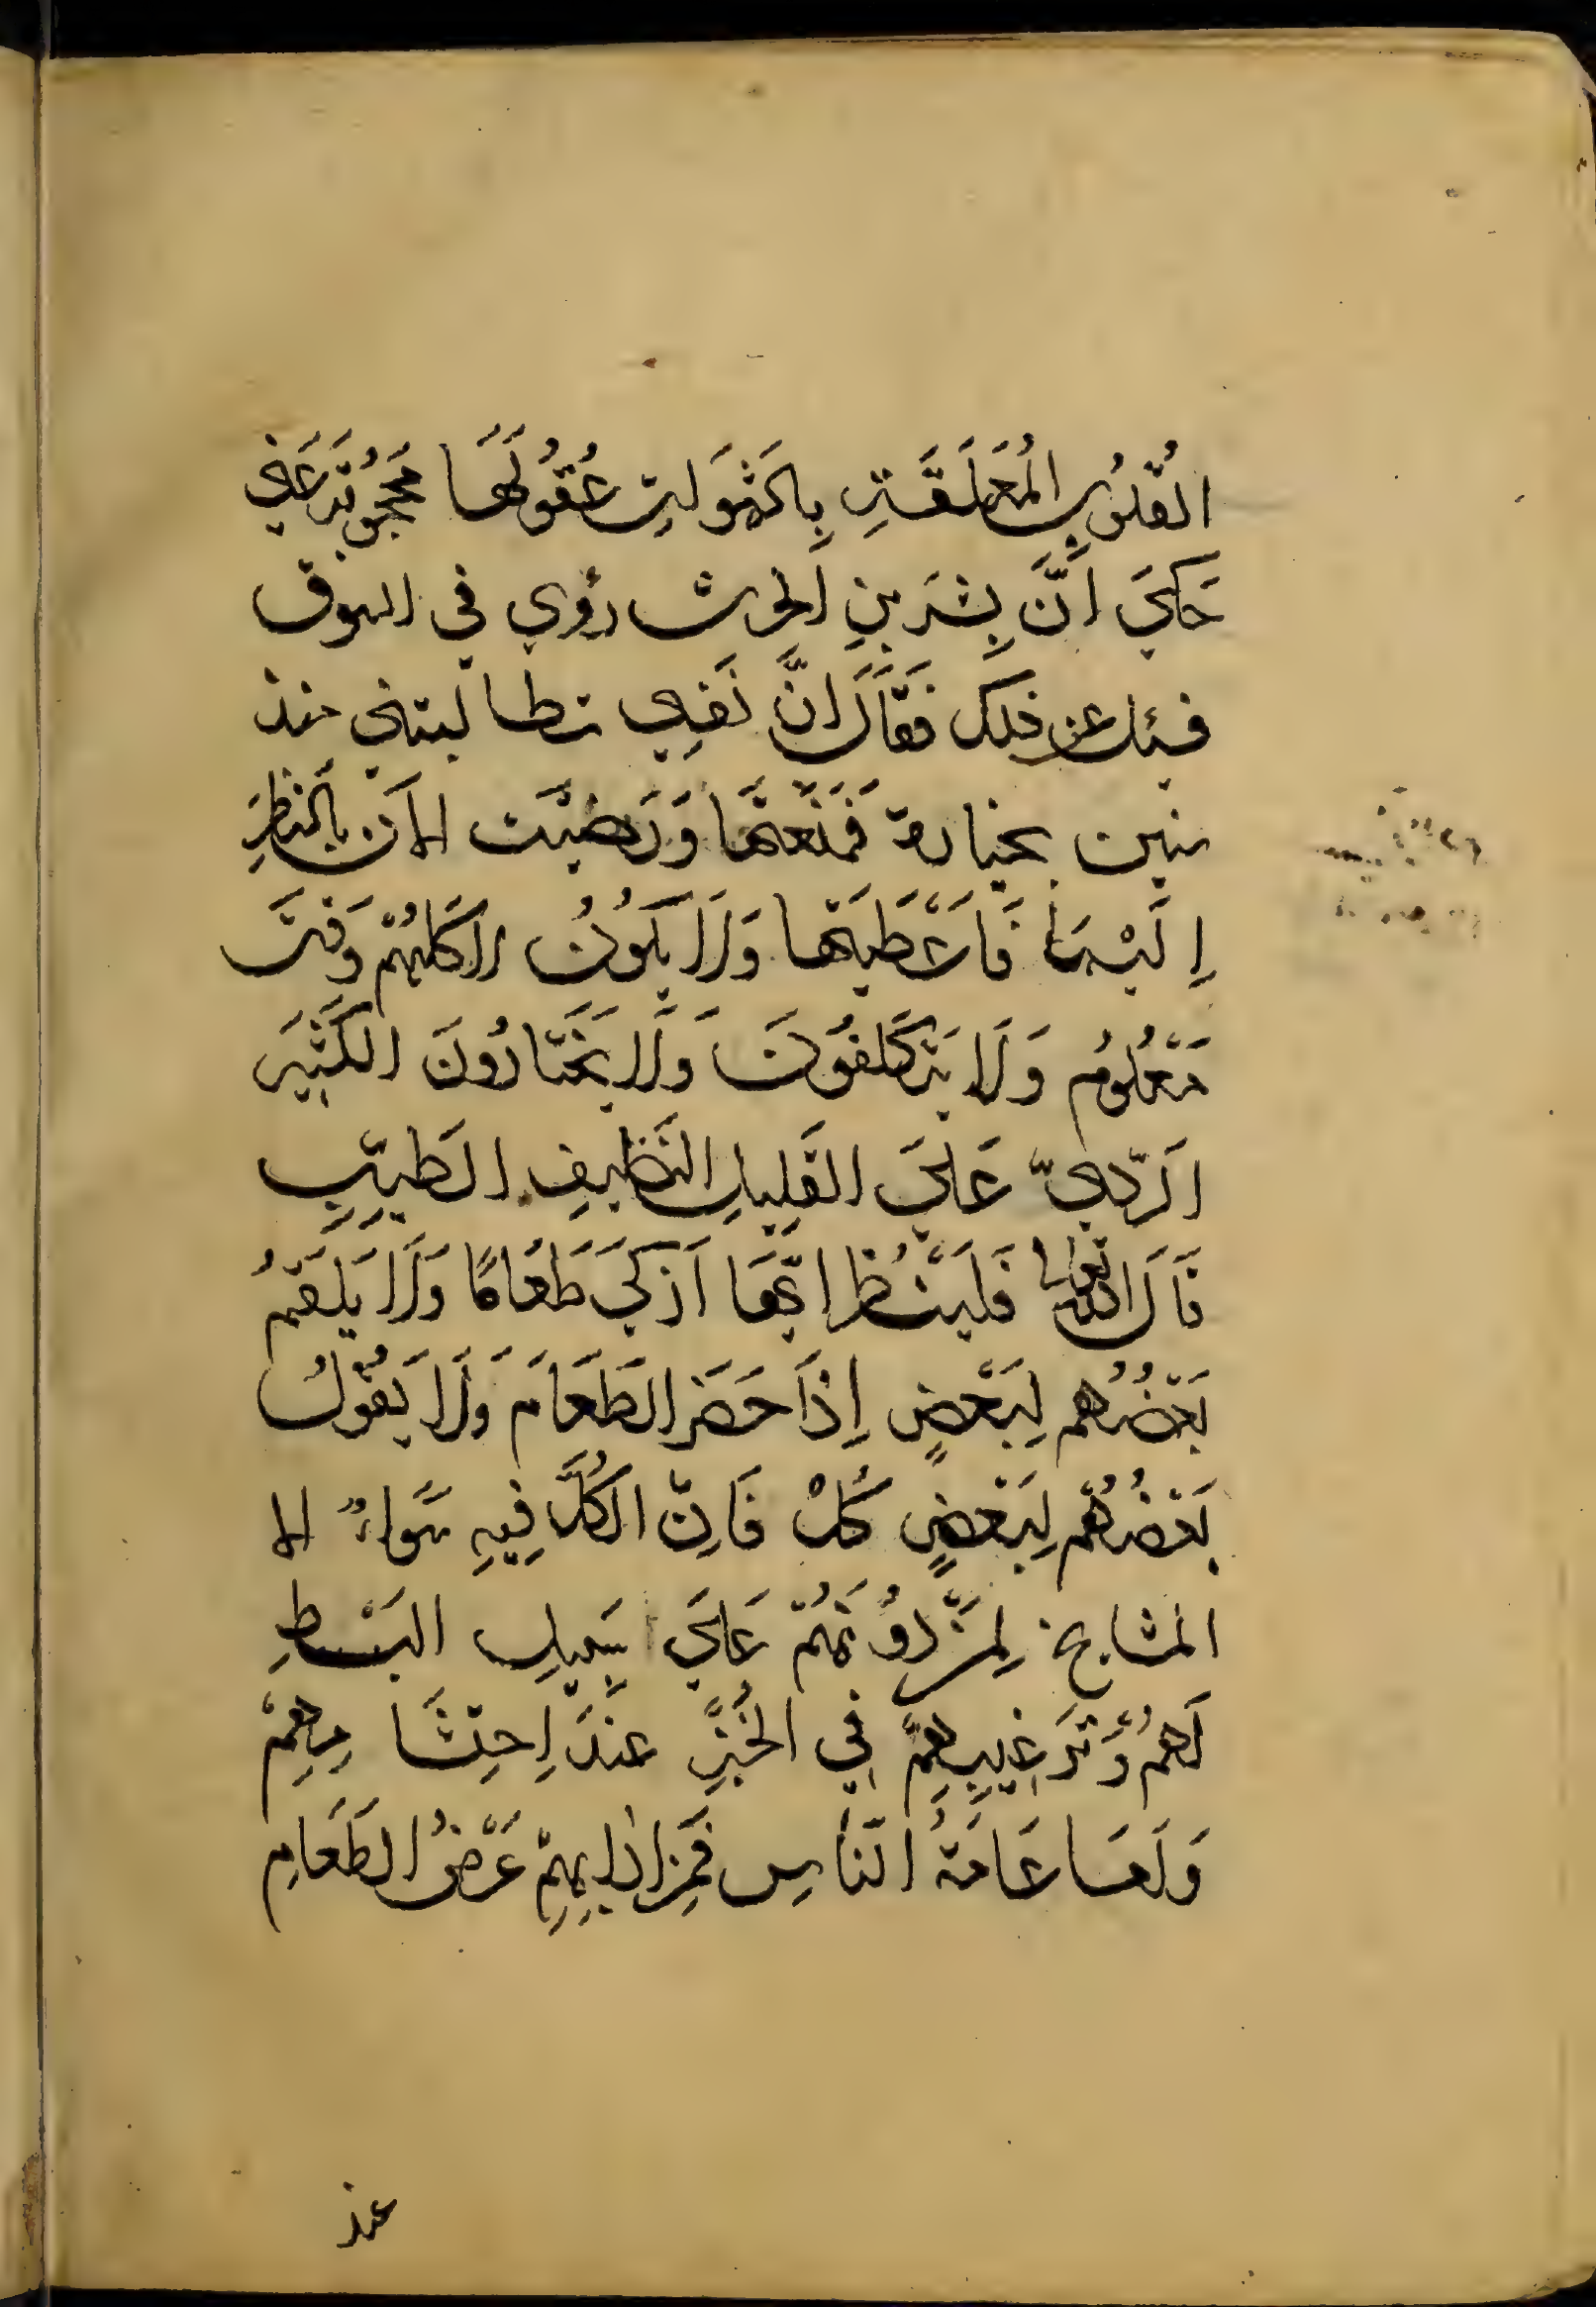 القُلُوبِ المُعَلَّقَةِ بِالشَهَوَاتِ عُقُولُهَا مَحجُوبَة عَنِّي
حَكَيَ اَنَّ بِشرَ بنِ الحرث رؤي في السوق
فسئل عن ذلك فَقَالَ اِنَّ نَفسِي تطالبتني منذ
سنين بخيارة فَمَنَعتُهَا وَرَضيَت الآن بِالنظَرِ
اِلَيْهَا فَاَعْطَيتُهَا وَلَا يَكُونُ لِاَكلِهُمْ وَقتٌ
مَعْلُومٌ وَلَا يَتَكَلفُونَ وَلَا يَختَارُونَ الكَثِيَر
الَردِيّ عَليَ القَلِيلِ النَظِيفِ الطَيِّبِ
قَالَ الله تعالى فَليَنْظُر اَيُّهَا اَزكيَ طَعَامًا وَلَا يَلقَمُ
بَعْضُهُم لِبَعْضٍ اِذَا حَضَر الطَعَامَ وَلَا يَقُولُ
بَعْضُهُمْ لِبَعْضٍ كُلْ فَاِنّ الكُلَّ فِيِه سَواءٌ الا
المشايخ لِمَنْ دُونَهُمْ عَلَيَ سَبِيلِ البَسْطِ
لَهُمْ وَتَرغِيبِهِمْ فِي الخُبزِ عِندَ اِحتِشَامِهِمْ
وَلَعسا عَامَةُ النَّاسِ فَمِن ادابِهِمْ عَرْضُ الطَعَامِ
عند